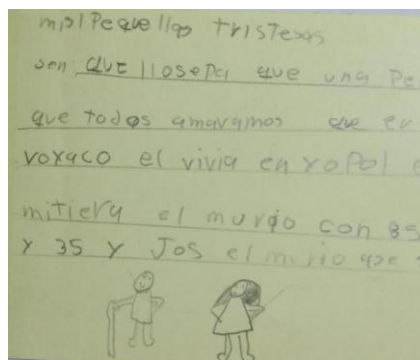 mis Pequellas tristesas
sen que llosepa que una Pe
que todos amavamos que er
voyaco el vivia en yopol e
mitiera el murio con 85
y 35 y Jos el murio que